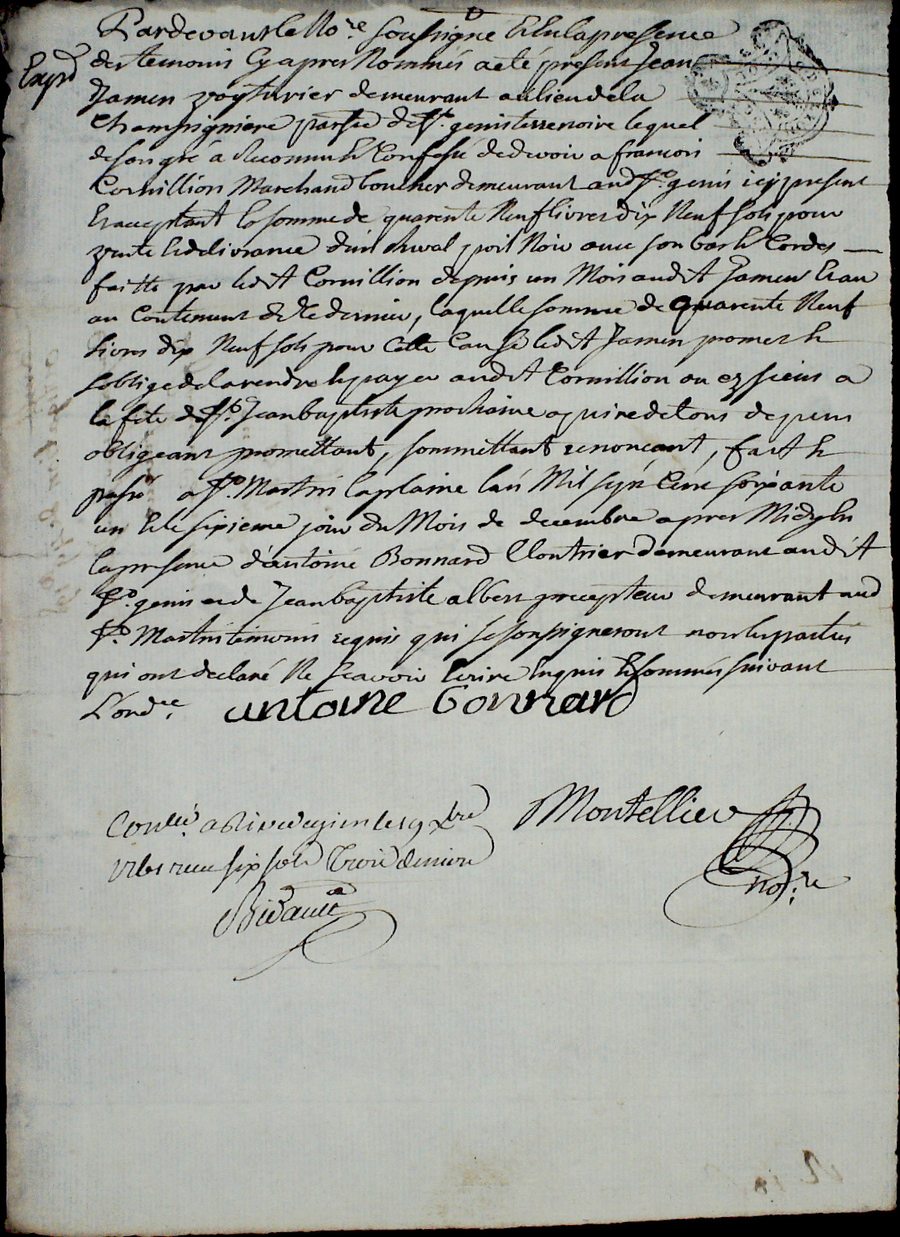 Pardevant le No.re soussigné Et En la pressence
Expd
des temoins Cy apres Nommés a eté present Jean
Jamen voyturier demeurant au lieu de la
Champigniere parsse de St. genis terrenoire lequel
de son gré à Reconnu Et Confessé de devoir a francois
Cornillion Marchand boucher demeurant aud St. genis icy present
Et acceptant la somme de quarente Neuf livres dix Neuf sols pour
vente Et delivrance d'un cheval poil Noir avec son bas Et Cordes
faitte par ledit Cornillion depuis un Mois audit Jamen Et au
au Contement de Ce dernier, laquelle somme de quarente Neuf
livres dix Neuf sols pour Cette Cause ledit Jamen promet Et
s'oblige de la rendre Et payer audit Cornillion ou ez siens a
la fete de St. Jean baptiste prochaine a peine de tous depens
obligeant promettant, soumettant renoncant, fait Et
passé a St. Martin la plaine l'an Mil sept Cent soixante
un Et le sixieme jour du Mois de decembre apres Midy En
la presence d'antoine Bonnard Cloutrier demeurant audit
St. genis et de Jean baptiste albert precepteur demeurant aud
St. Martin temoins requis qui se sousigneront non les parties
qui ont declaré Ne scavoir Ecrire Enquis Et sommés suivant
L'ondce.
antoine Bonnard
Conllé. a Rivedegier le 19 xbre
1761 receu six sols Trois deniers
Montellier
no.re
Bidault